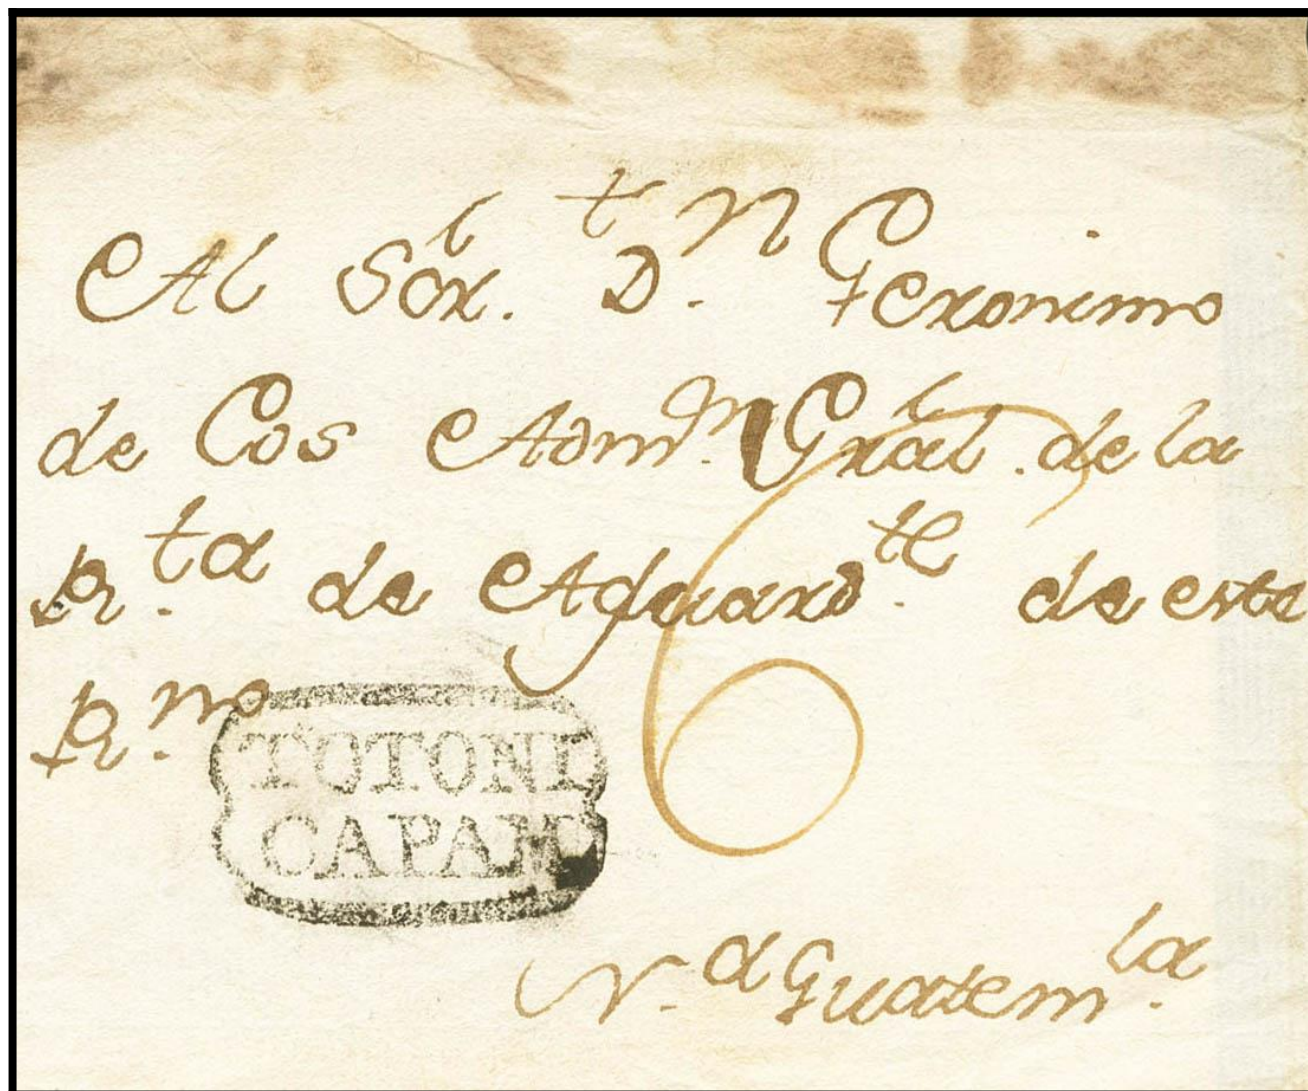 Al Sōr. D.ⁿ Geronimo
de Cos Adm.ᵒʳ Grāl. de la
R.ᵗᵃ de Aguard.ᵗᵉ de este
R.ⁿᵒ
6
TOTONI
CAPAN
N.ᵃ Guatem.ˡᵃ